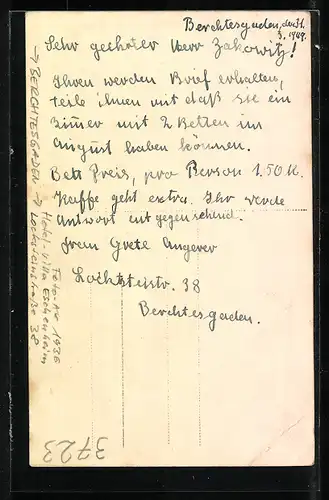 Berchtesgaden, den 31.
5. 1949.
Sehr geehrter Herr Zakowitz!
Ihren werden Brief erhalten,
teile ihnen mit daß sie ein
Zimer mit 2 Betten im
August haben können.
Bett Preis, pro Person 1.50 M.
Kaffe geht extra. Ihr werde
Antwort entgegensehend.
frau Grete Angerer
Lochsteinstr. 38
Berchtesgaden.
→ BERCHTESGADEN →
Foto Nr. 1936
Hotel-Villa Eschenheim
Locksteinstraße 38
3723